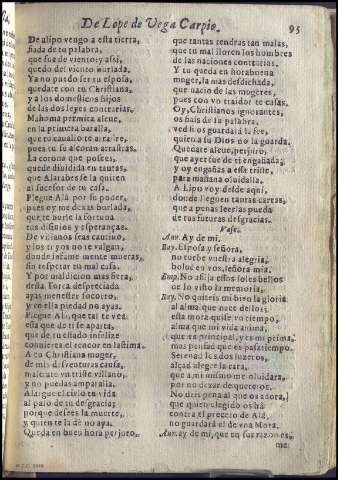 De Lope de Vega Carpio.
95
De alipo vengo a esta tierra,
fiada de tu palabra,
que fue de viento; y assi,
quedo del viento burlada.
Ya no puedo ser tu esposa,
quedate con tu Christiana,
y a los domesticos hijos
de las dos leyes contrarias.
Mahoma permita alcue,
en la primera batalla,
que tu cauallo te arrastre,
pues tu su alcoran arrastras.
La corona que posees,
quede diuidida en tantas,
que Alarabes se la quiten
al sucessor de tu casa.
Plegue Alà por su poder,
pues oy me dexas burlada,
que te burle la fortuna
tus disinios y esperanças.
De villanos seas cautiuo,
y los tuyos no te valgan,
donde infame mente mueras,
sin respetar tu mal casa.
Y por maldicion mas fiera,
desta Torca despreciada
ayas menester socorro,
y en ella piedad no ayas.
Plegue Alà, que tal te vea
esta que de ti se aparta,
que de tu estado infelize
comiences el rencor en lastima.
A tu Christiana muger,
de mis desuenturas causa,
maltrate vn triste villano,
y no puedas ampararla.
Alargue el cielo tu vida
al paso de tu desgracia;
porque desees la muerte,
y quien te la dè no aya.
Queda en buen hora perjuro,
que tantas tendras tan malas,
que tu mal lloren los hombres
de las naciones contrarias.
Y tu queda en hora buena
moger, la mas desdichada,
que nacio de las mugeres,
pues con vn traidor te casas.
Oy, Christianos ignorantes,
os fiais de su palabra,
ved si os guardarà la fee,
quien a su Dios no la guarda.
Quedate alcue, perjuro,
que ayer fue de ti engañada,
y oy engañas a esta triste,
para mañana oluidalla.
A Lipo voy, desde aqui,
donde lleguen tantas cartas,
que a penas leerlas pueda
de tus futuras desgracias.
Vase.
Aur. Ay de mi.
Rey. Esposa y señora,
no turbe vuestra alegria,
bolued en vos, señora mia.
Emp. No assista essos soles bellos
de lo visto la memoria.
Rey. No quiteis mi bien la gloria
al alma que nace dellos,
esta mora quise vn tiempo,
alma que mi vida anima,
que es principal, y es mi prima,
mas pensad que es passatiempo.
Serenad los dos luzeros,
alçad, alegre la cara,
que a mi mismo me oluidara,
por no dexar de quereros.
No direis pena al que os adora,
que quien elegido os ha
contra el precepto de Alà,
no guardarà el de vna Mora.
Aur. ay de mi, que en sus razones,
me